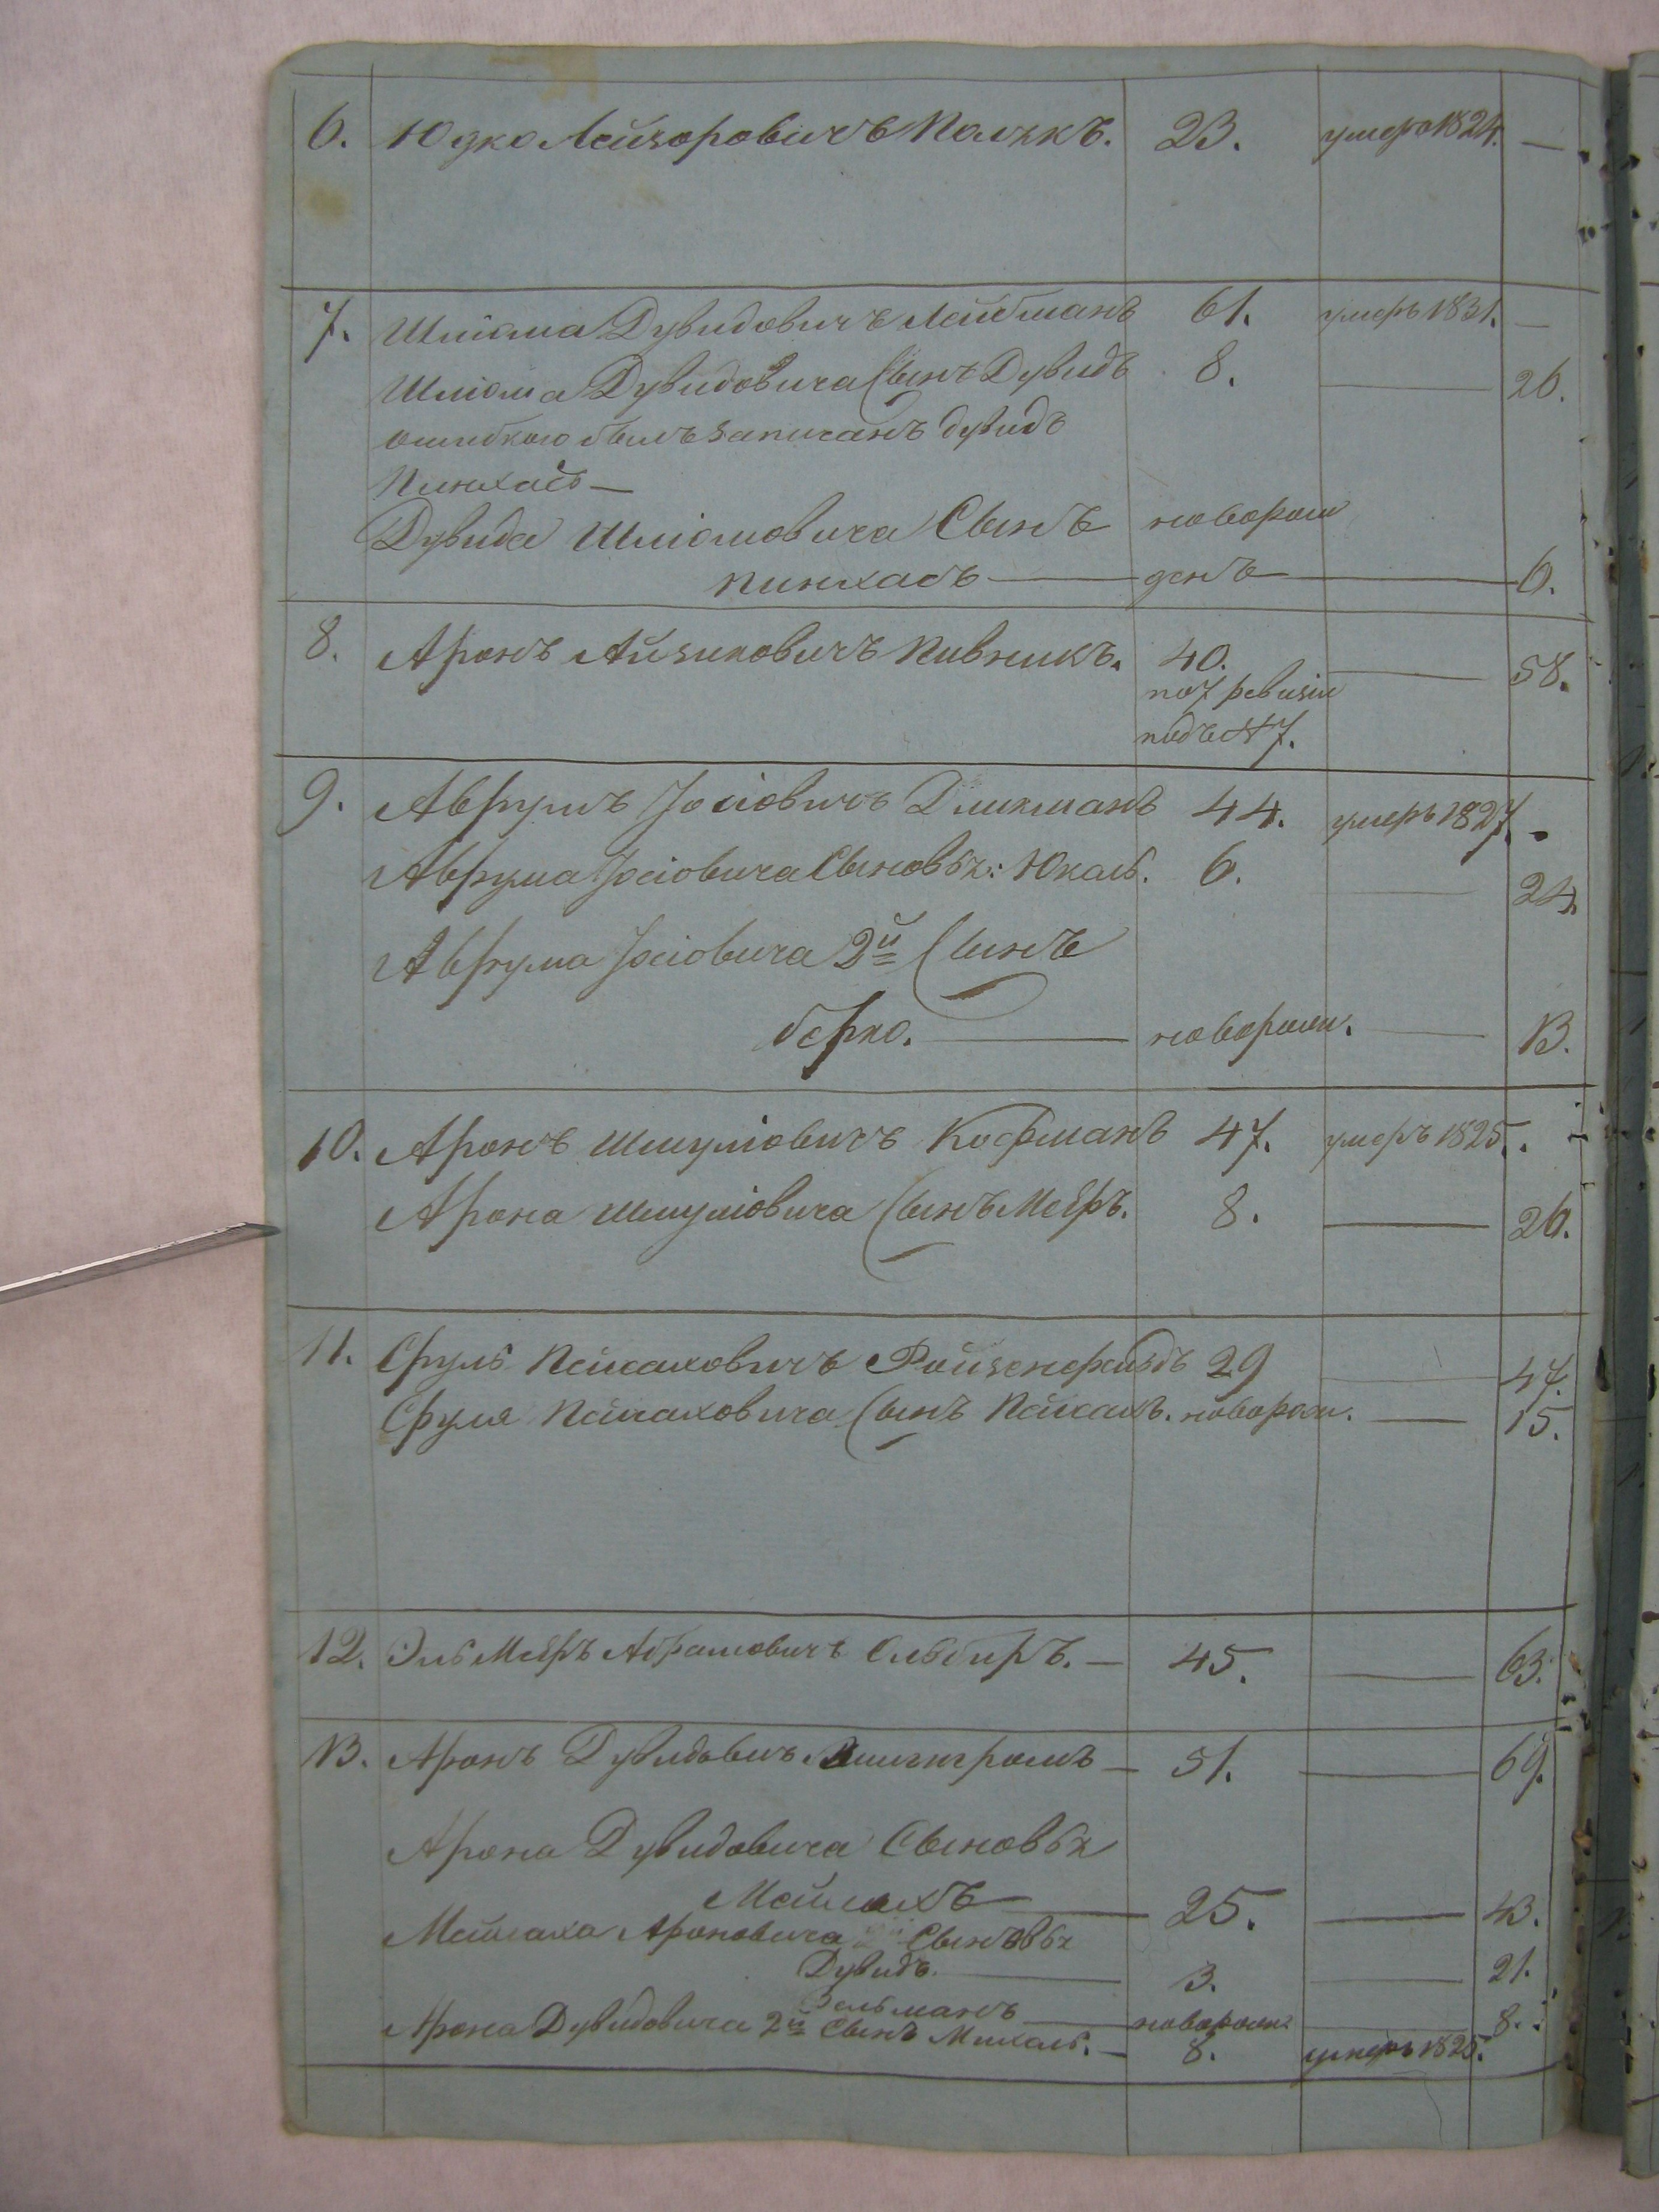 6. Юдко Лейзоровичъ 23. умеръ 1824. —
7. Шліома Дувидовичъ Лейбманъ 61. умеръ 1831. —
Шліома Дувидовича Сынъ Дувидъ 8. — 26.
ошибкою былъ записанъ дувидъ
Пинхасъ —
Дувида Шліомовича Сынъ новорож
пинхасъ — денъ — 6.
8. Аронъ Айзиковичъ Пивникъ. 40. — 58.
по 7 ревизіи
подъ № 7.
9. Аврумъ Іосіовичъ Дикманъ 44. умеръ 1827. .
Аврума Іосіовича Сыновья: Юкаль. 6. — 24.
Аврума Іосіовича 2й Сынъ
берко. —новорож. — 13.
10. Аронъ Шмуліовичъ Кофманъ 47. умеръ 1825. .
Арона Шмуліовича Сынъ Меѣръ. 8. — 26.
11. Сруль Пейсаховичъ Ройзенфельдъ 29 — 47.
Сруля Пейсаховича Сынъ Пейсахъ. новорож. — 15.
12. Эль Меѣръ Абрамовичъ — 45. — 63.
13. Аронъ Дувидовичъ — 51. — 69.
Арона Дувидовича Сыновья
Мейлахъ — 25. — 43.
Мейлаха Ароновича Сыновья
Дувидъ. — 3. — 21.
Зельманъ — новорож. — 8.
Арона Дувидовича 2й Сынъ Михаль. — 8. умеръ 1825.